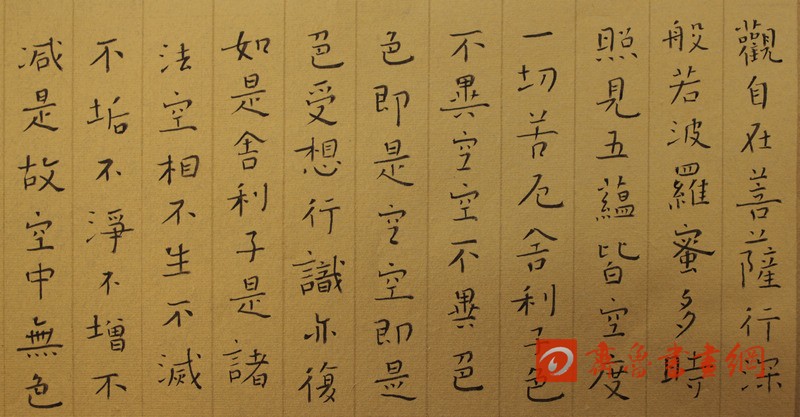 觀自在菩薩行深
般若波羅蜜多時
照見五蘊皆空度
一切苦厄舍利子色
不異空空不異色
色即是空空即是
色受想行識亦復
如是舍利子是諸
法空相不生不滅
不垢不淨不增不
减是故空中無色
齊魯書畫網